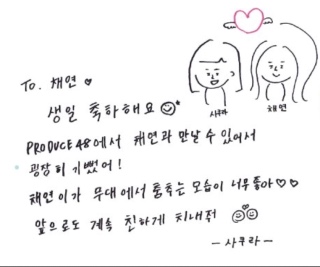 To. 채연 ♡
생일 축하해요
사쿠라 채연
PRODUCE48에서 채연과 만날 수 있어서
굉장히 기뻤어!
채연이가 무대에서 춤추는 모습이 너무 좋아♡♡
앞으로도 계속 친하게 지내줘
- 사쿠라 -